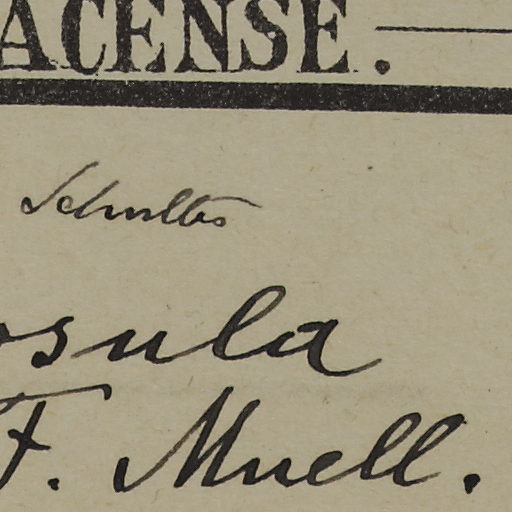 ACENSE.
Schultes
osula
F. Muell.